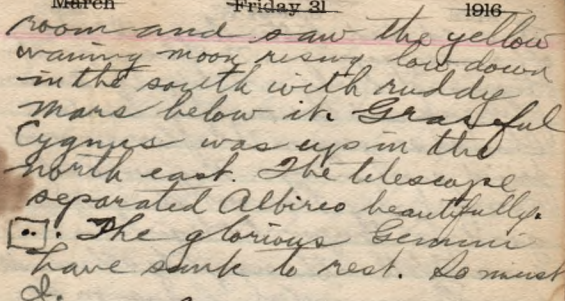 March Friday 31 1916
room and saw the yellow
waning moon rising low down
in the south with ruddy
Mars below it. Graceful
Cygnus was up in the
north east. The telescope
separated Albireo beautifully.
The glorious Gemini
have sunk to rest. So must
I.